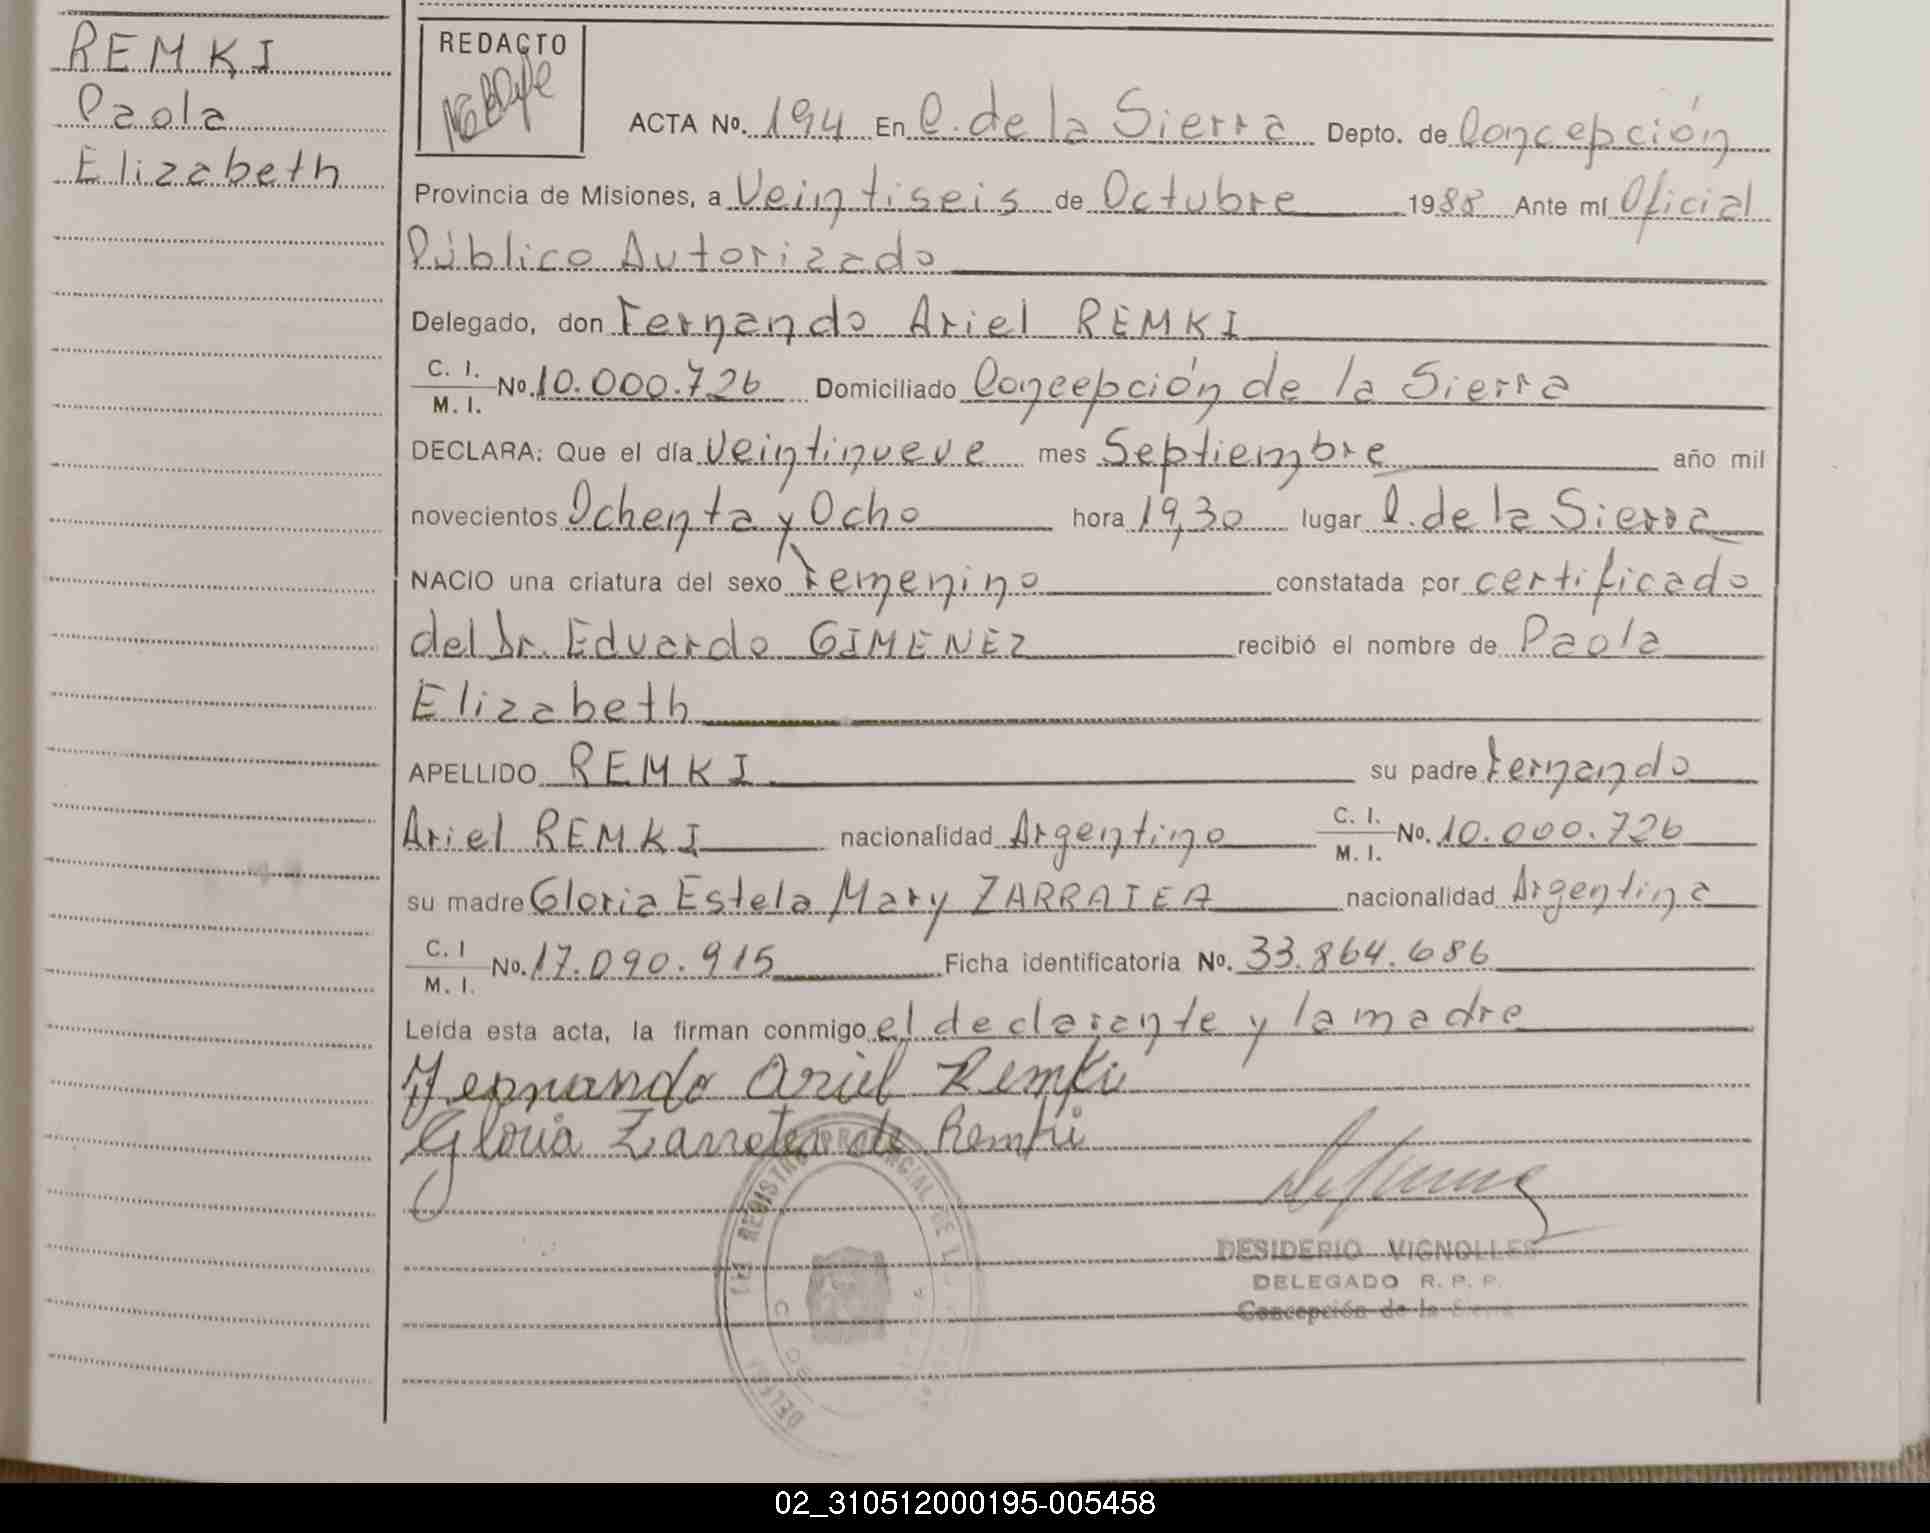 REMKI
Paola
Elizabeth
REDACTO
ACTA No. 194 En C. de la Sierra Depto. de Concepción
Provincia de Misiones, a Veintiseis de Octubre 1988 Ante mí Oficial
Público Autorizado
Delegado, don Fernando Ariel REMKI
C. I.
M. I. No. 10.000.726 Domiciliado Concepción de la Sierra
DECLARA: Que el día veintinueve mes Septiembre año mil
novecientos Ochenta y Ocho hora 19,30 lugar C. de la Sierra
NACIO una criatura del sexo Femenino constatada por certificado
del Dr. Eduardo GIMENEZ recibió el nombre de Paola
Elizabeth
APELLIDO REMKI su padre Fernando
Ariel REMKI nacionalidad Argentino C. I.
M. I. No. 10.000.726
su madre Gloria Estela Mary ZARRATEA nacionalidad Argentina
C. I
M. I. No. 17.090.915 Ficha identificatoria No. 33.864.686
Leída esta acta, la firman conmigo el declarante y la madre
Fernando Ariel Remki
Gloria Zarratea de Remki
DESIDERIO VIGNOLLES
DELEGADO R. P. P.
Concepción de la Sierra
02_310512000195-005458